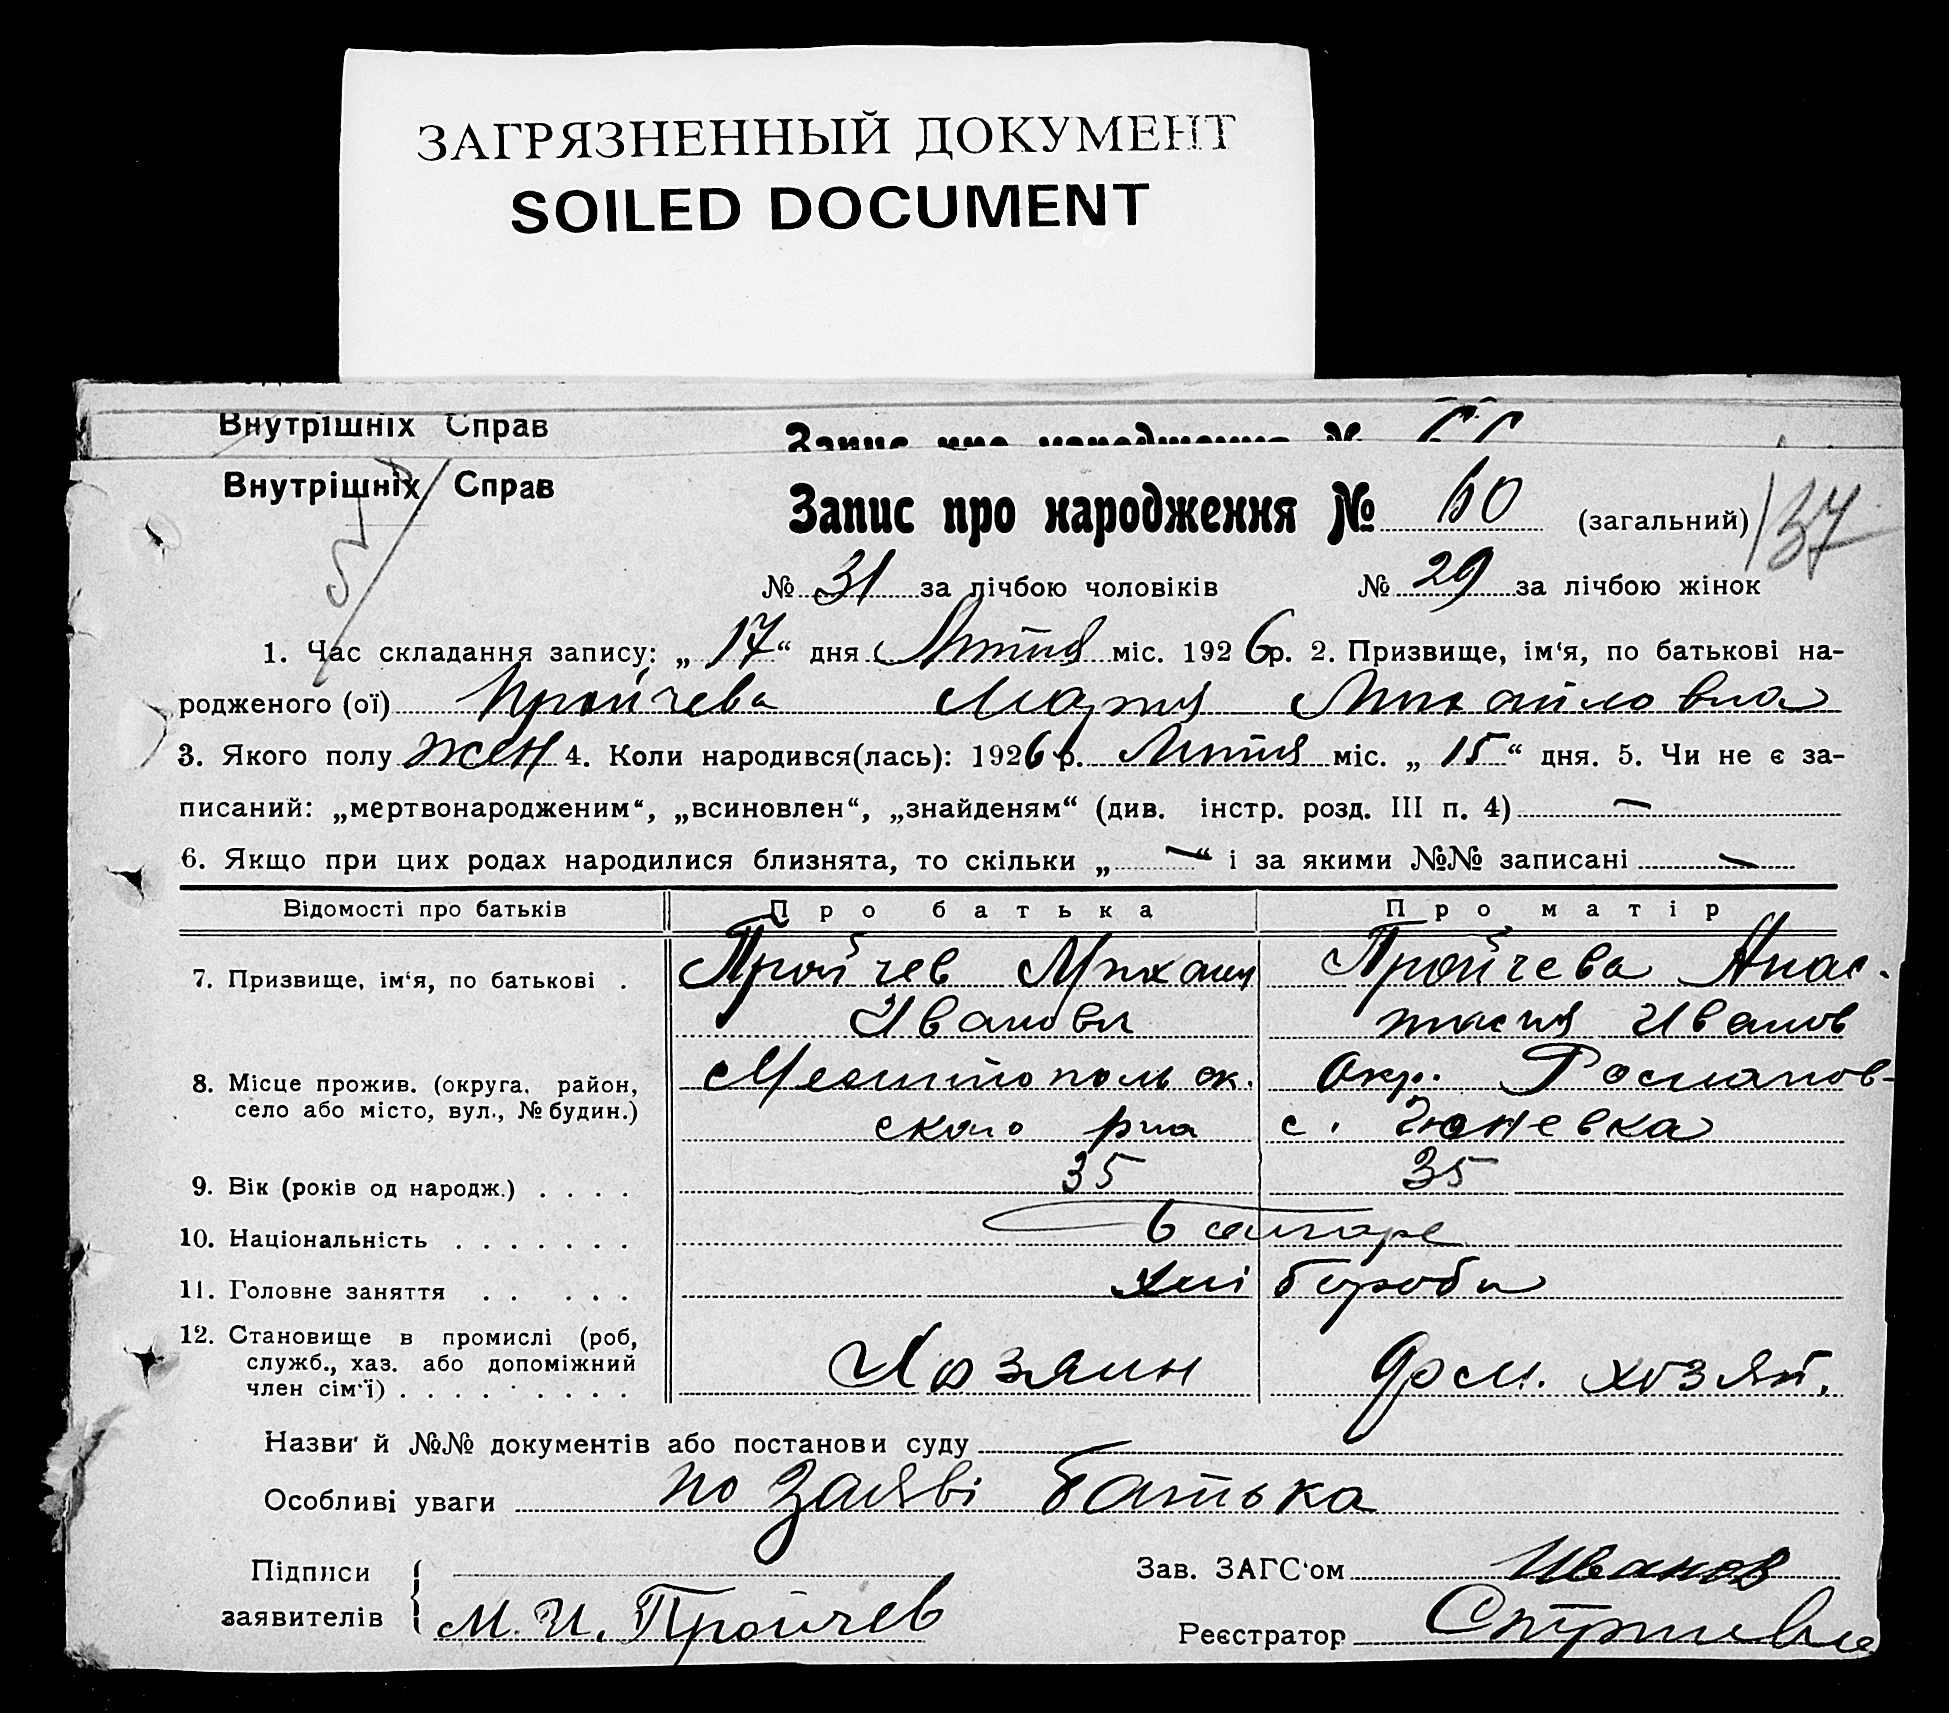 ЗАГРЯЗНЕННЫЙ ДОКУМЕНТ
SOILED DOCUMENT
Внутрішніх Справ
Запис про народження №
Внутрішніх Справ
Запис про народження № 60 (загальний) 137
№ 31 за лічбою чоловіків № 29 за лічбою жінок
1. Час складання запису: „ 17 “ дня Лютня міс. 1926 р. 2. Призвище, ім‘я, по батькові на-
родженого (ої) Пройчева Мария Михайловна
3. Якого полу жен 4. Коли народився(лась): 1926 р. Лютня міс. „ 15 “ дня. 5. Чи не є за-
писаний: „мертвонародженим“, „всиновлен“, „знайденям“ (див. інстр. розд. III п. 4) —
6. Якщо при цих родах народилися близнята, то скільки „ — “ і за якими №№ записані —
Відомості про батьків Про батька Про матір
7. Призвище, ім‘я, по батькові . Пройчев Михаил Пройчева Анас-
Иванов тасия Иванов
8. Місце прожив. (округа, район, Мелитопольск. Окр. Романов-
село або місто, вул., № будин.) ского р-на с.
9. Вік (років од народж.) . . . . 35 35
10. Національність . . . . . . . Болгаре
11. Головне заняття . . . . . Хліборобы
12. Становище в промислі (роб, Хозяин дом. хозяй.
служб., хаз. або допоміжний
член сім‘ї) . . . . . . . . .
Назви й №№ документів або постанови суду
Особливі уваги по Заяві батька
Підписи Зав. ЗАГС‘ом Иванов
заявителів М. И. Пройчев Реєстратор